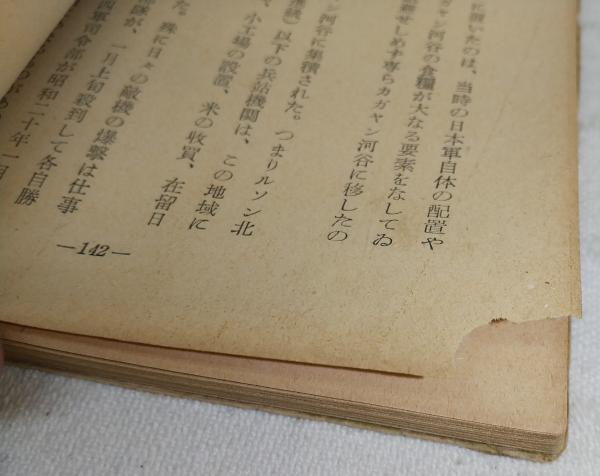 に置いたのは、当時の日本軍自体の配置や
ガヤン河谷の食糧が大なる要素をなしてゐ
務せしめず専らカガヤン河谷に移したの
ン河谷に集積された。つまりルソン北
地域)以下の兵站機関は、この地域に
、小工場の設置、米の收買、在留日
た。殊に日々の敵機の爆撃は仕事
部隊が、一月上旬殺到して各自勝
四軍司令部が昭和二十年一月
—142—